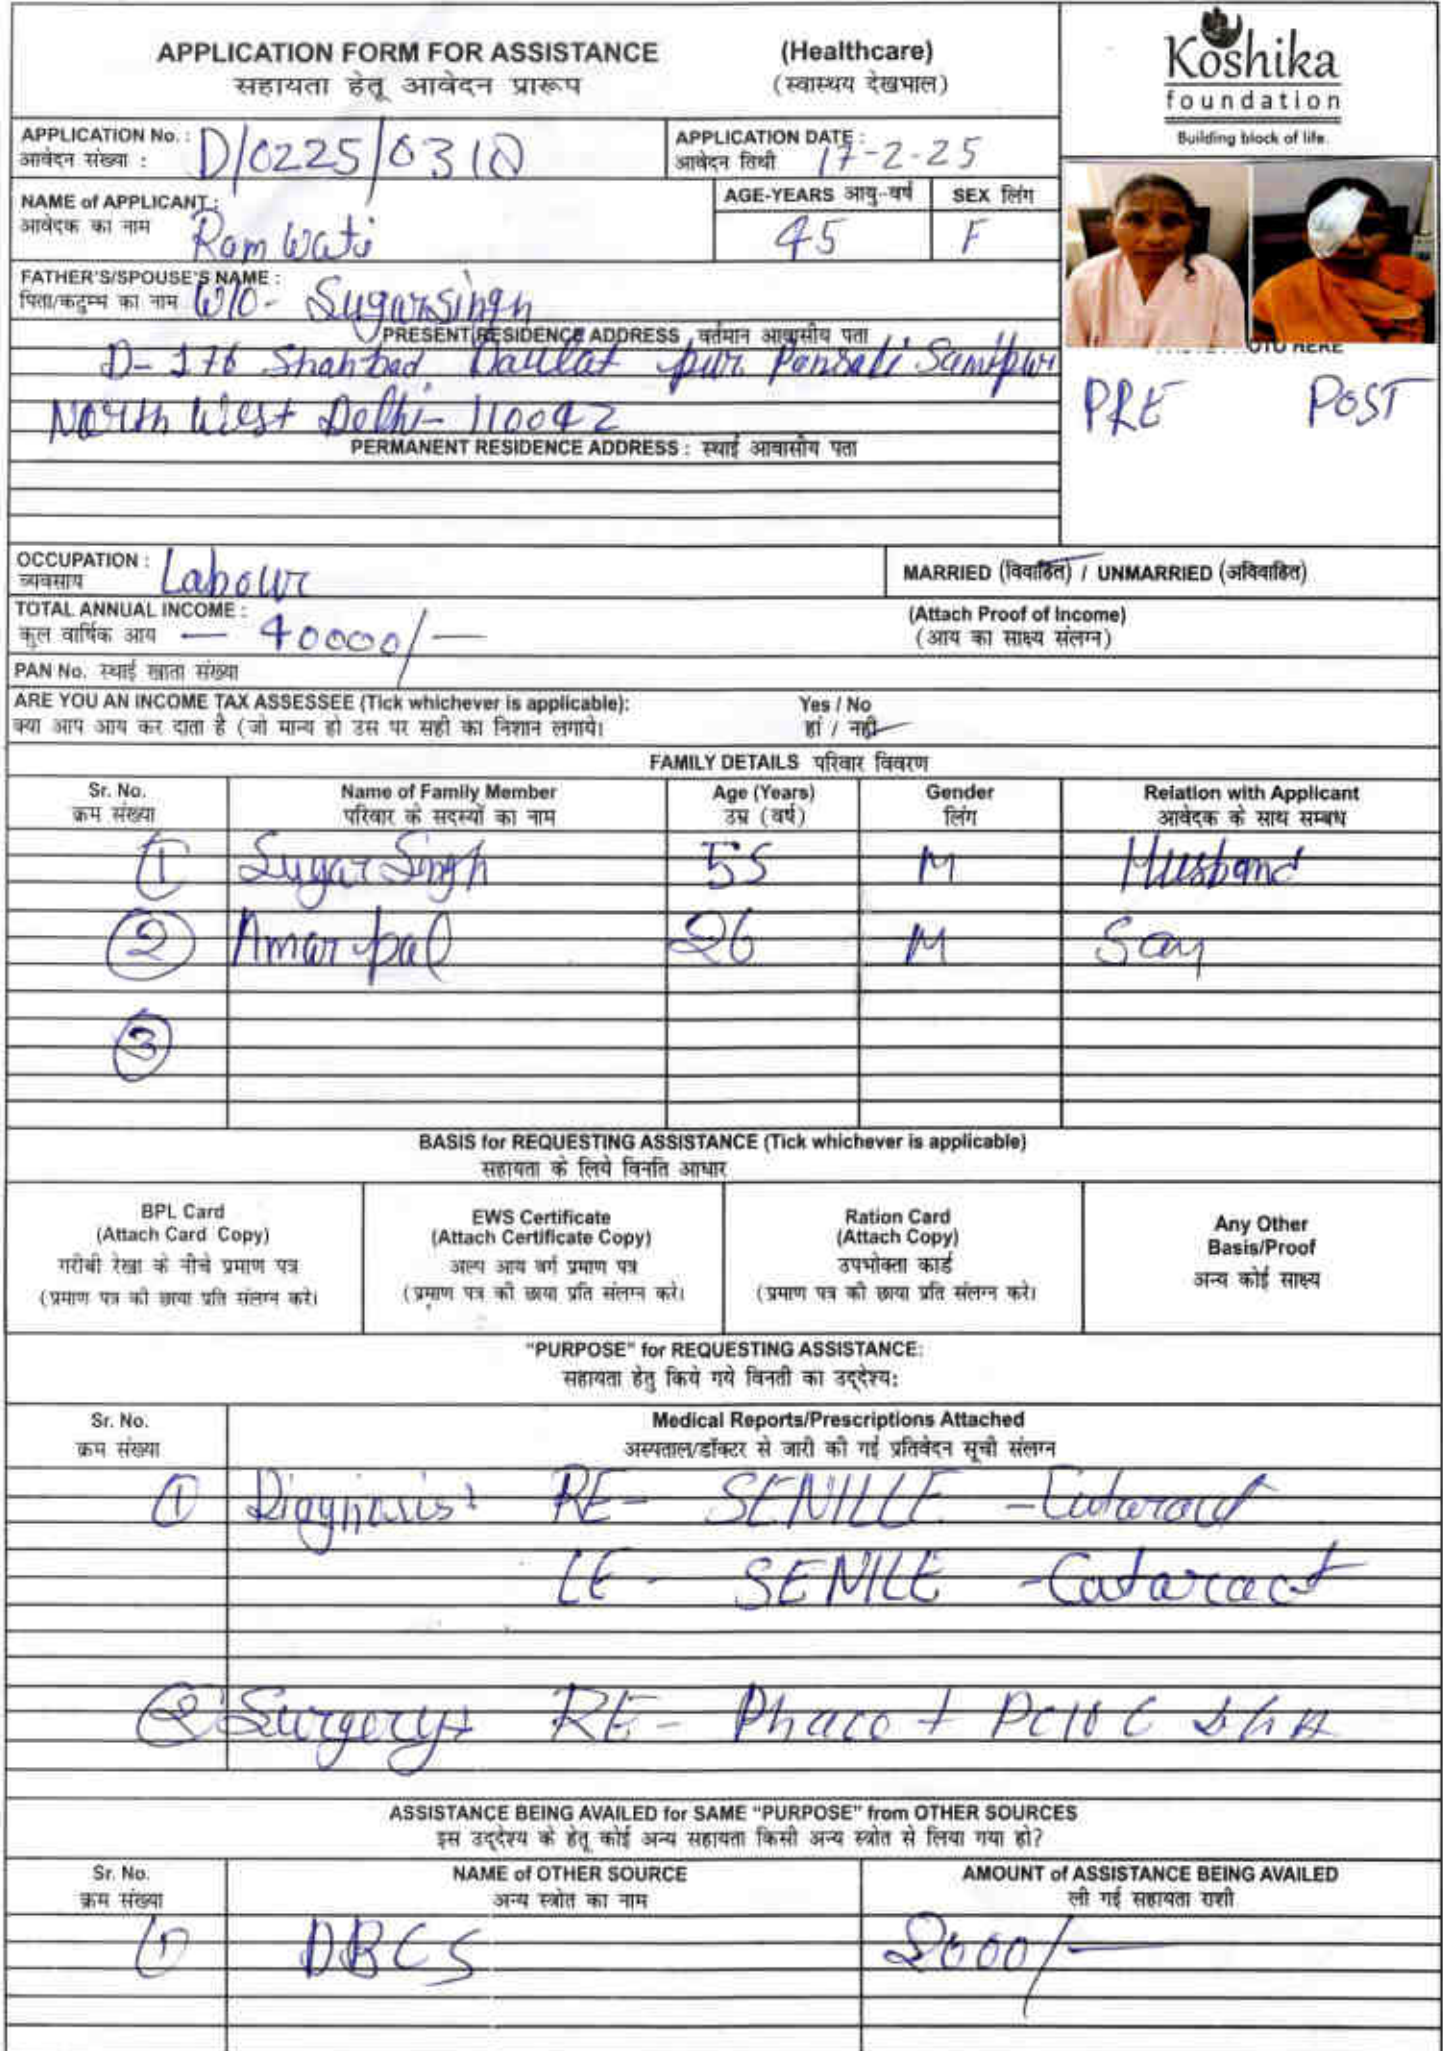 APPLICATION FORM FOR ASSISTANCE (Healthcare)
सहायता हेतू आवेदन प्रारूप (स्वास्थय देखभाल)
Koshika
foundation
Building block of life.
APPLICATION No. : D/0225/0310
आवेदन संख्या :
APPLICATION DATE : 17-2-25
आवेदन तिथी
NAME of APPLICANT : Ram Wati
आवेदक का नाम
AGE-YEARS आयु-वर्ष 45
SEX लिंग F
FATHER'S/SPOUSE'S NAME :
पिता/कटुम्म का नाम W/O- Sugarsingh
PRESENT RESIDENCE ADDRESS वर्तमान आवासीय पता
D-176 Shahbad Daulat pur Pansali Samipur
North West Delhi- 110042
PHOTO HERE
PRE POST
PERMANENT RESIDENCE ADDRESS : स्थाई आवासीय पता
OCCUPATION : Labour
व्यवसाय
MARRIED (विवाहित) / UNMARRIED (अविवाहित)
TOTAL ANNUAL INCOME :
कुल वार्षिक आय — 40000/-
(Attach Proof of Income)
(आय का साक्ष्य संलग्न)
PAN No. स्थाई खाता संख्या
ARE YOU AN INCOME TAX ASSESSEE (Tick whichever is applicable): Yes / No
क्या आप आय कर दाता है (जो मान्य हो उस पर सही का निशान लगाये। हां / नही
FAMILY DETAILS परिवार विवरण
Sr. No. Name of Family Member Age (Years) Gender Relation with Applicant
क्रम संख्या परिवार के सदस्यों का नाम उम्र (वर्ष) लिंग आवेदक के साथ सम्बध
1 Sugar Singh 55 M Husband
2 Amar pal 26 M Son
3
BASIS for REQUESTING ASSISTANCE (Tick whichever is applicable)
सहायता के लिये विनति आधार
BPL Card
(Attach Card Copy)
गरीबी रेखा के नीचे प्रमाण पत्र
(प्रमाण पत्र की छाया प्रति संलग्न करे।
EWS Certificate
(Attach Certificate Copy)
अल्प आय वर्ग प्रमाण पत्र
(प्रमाण पत्र की छाया प्रति संलग्न करे।
Ration Card
(Attach Copy)
उपभोक्ता कार्ड
(प्रमाण पत्र की छाया प्रति संलग्न करे।
Any Other
Basis/Proof
अन्य कोई साक्ष्य
"PURPOSE" for REQUESTING ASSISTANCE:
सहायता हेतु किये गये विनती का उद्देश्य:
Sr. No. Medical Reports/Prescriptions Attached
क्रम संख्या अस्पताल/डॉक्टर से जारी की गई प्रतिवेदन सूची संलग्न
1 Diagnosis: RE- SENILLE -Cataract
LE - SENILE -Cataract
2 Surgery: RE- Phaco +
ASSISTANCE BEING AVAILED for SAME "PURPOSE" from OTHER SOURCES
इस उद्देश्य के हेतू कोई अन्य सहायता किसी अन्य स्त्रोत से लिया गया हो?
Sr. No. NAME of OTHER SOURCE AMOUNT of ASSISTANCE BEING AVAILED
क्रम संख्या अन्य स्त्रोत का नाम ली गई सहायता राशी
1 DBCS 2000/-